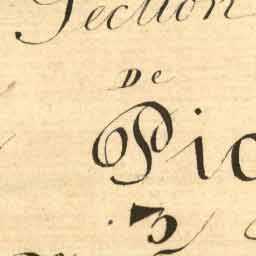 Section
De
Pic
3